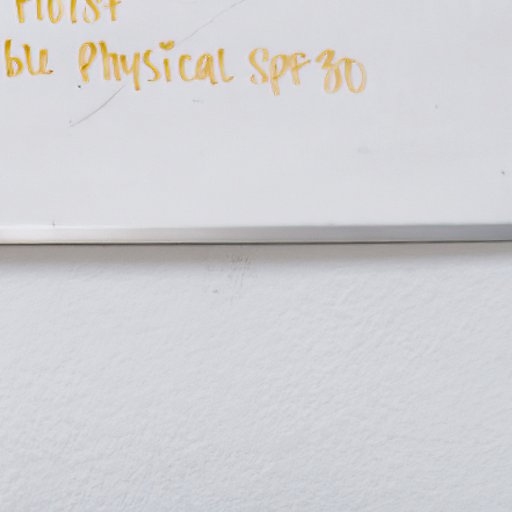 Moist
ble Physical SPF 30